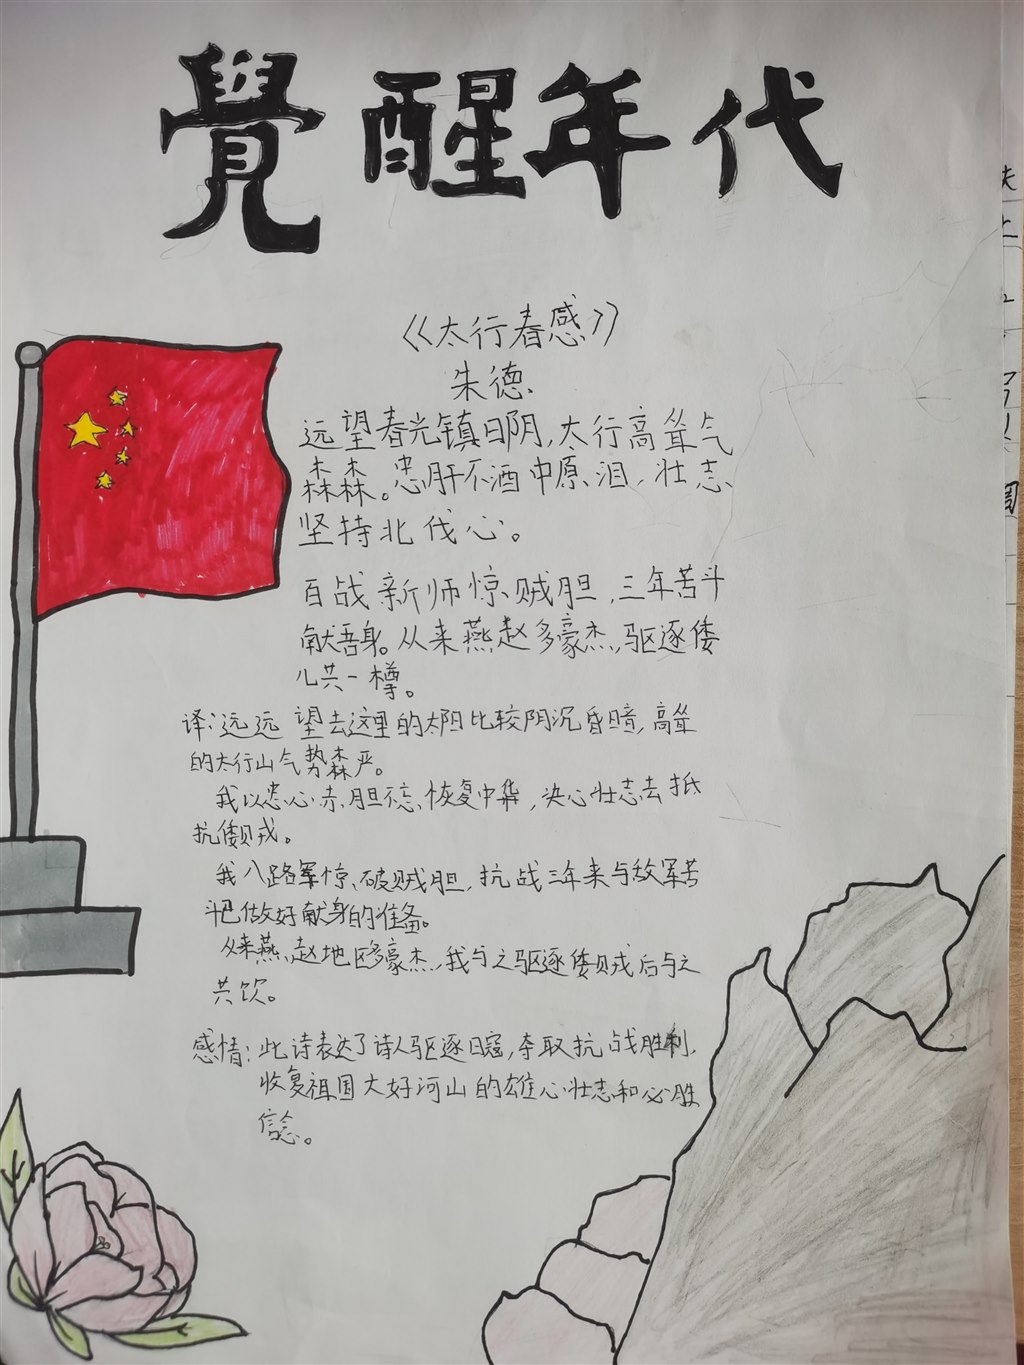 覺醒年代
《太行春感》
朱德.
远望春光镇日阴,太行高耸气
森森。忠肝不洒中原泪,壮志
坚持北伐心。
百战新师惊贼胆,三年苦斗
献吾身。从来燕赵多豪杰,驱逐倭
儿共一樽。
译:远远望去这里的太阳比较阴沉昏暗,高耸
的太行山气势森严。
我以忠心赤胆不忘恢复中华,决心壮志去抵
抗倭贼。
我八路军惊破贼胆,抗战三年来与敌军苦
斗已做好献身的准备。
从来燕赵地区多豪杰,我与之驱逐倭贼后与之
共饮。
感情:此诗表达了诗人驱逐日寇,夺取抗战胜利,
收复祖国大好河山的雄心壮志和必胜
信念。